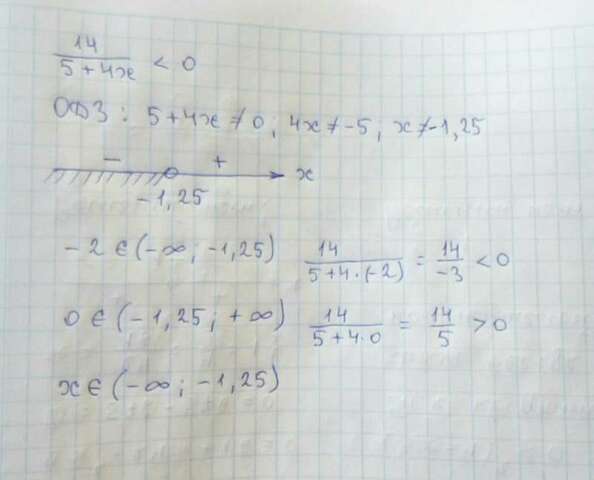 14/(5+4x) < 0
ОДЗ: 5+4x≠0; 4x≠-5; x≠-1,25
− + x
-1,25
-2 ∈ (-∞; -1,25) 14/(5+4·(-2)) = 14/-3 < 0
0 ∈ (-1,25; +∞) 14/(5+4·0) = 14/5 > 0
x ∈ (-∞; -1,25)